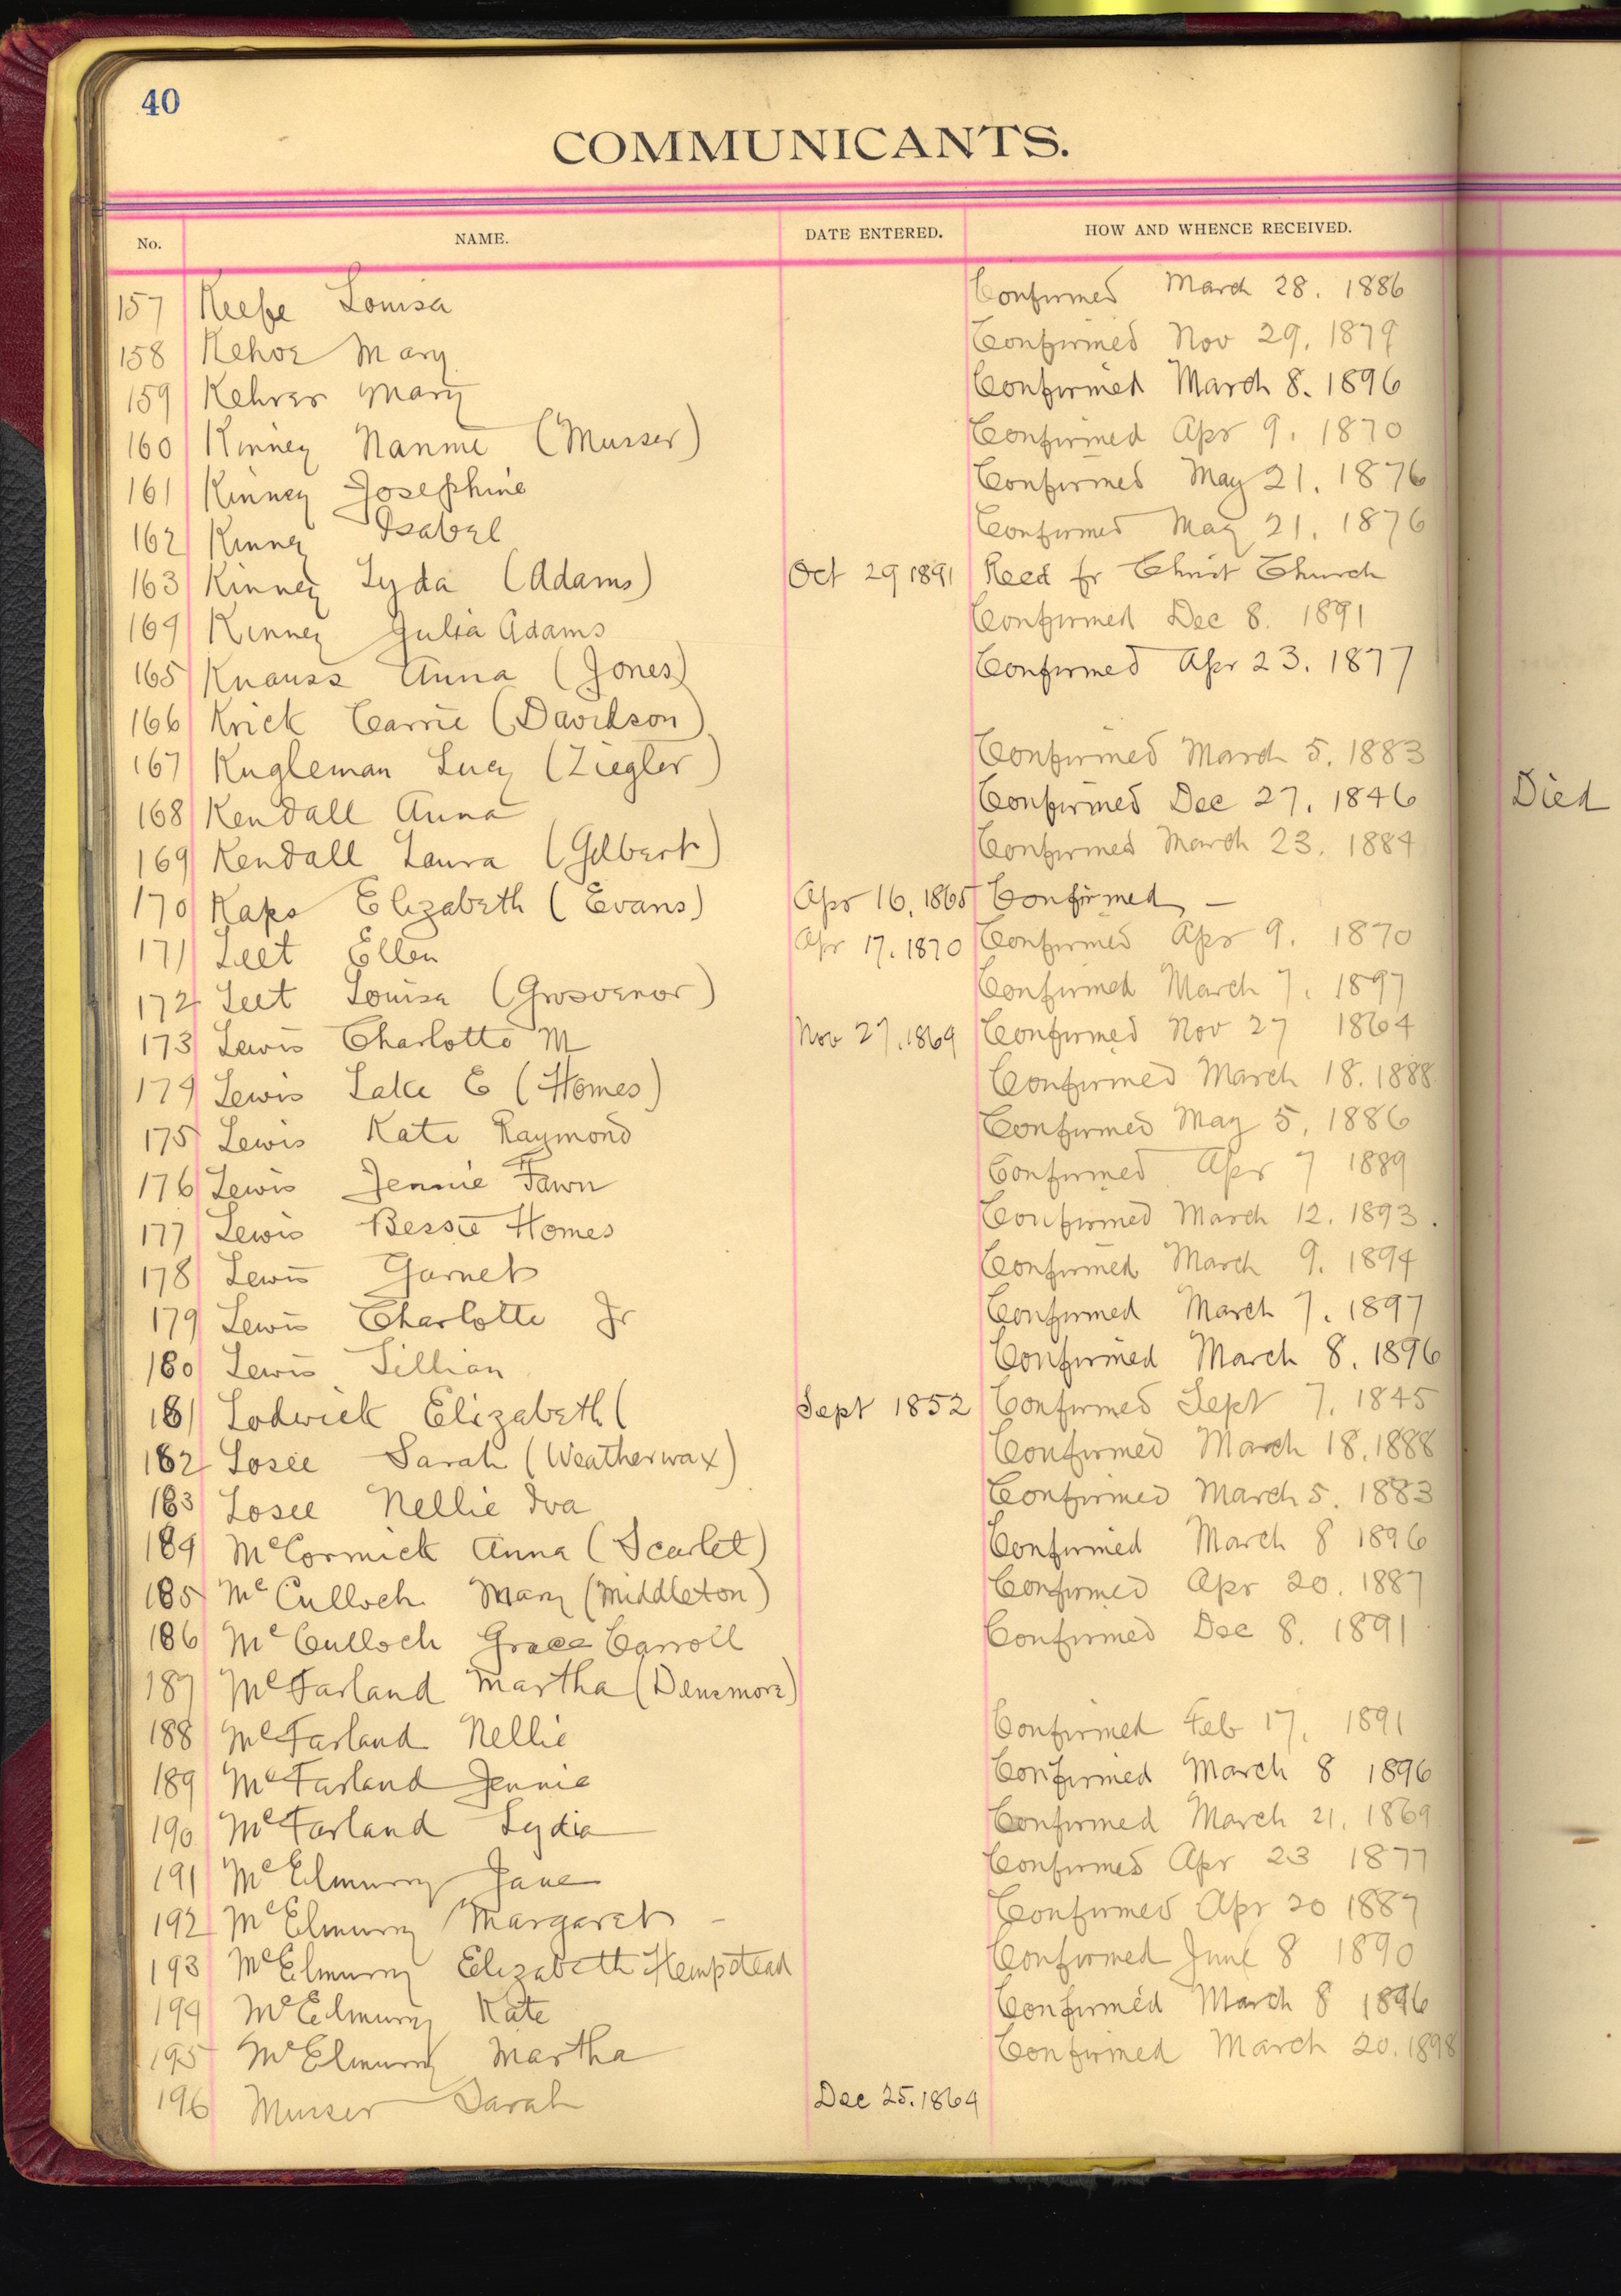 40
COMMUNICANTS.
No. NAME. DATE ENTERED. HOW AND WHENCE RECEIVED.
157 Keefe Louisa Confirmed March 28. 1886
158 Kehoe Mary Confirmed Nov 29. 1879
159 Kehrer Mary Confirmed March 8. 1896
160 Kinney Nannie (Musser) Confirmed Apr 9. 1870
161 Kinney Josephine Confirmed May 21. 1876
162 Kinney Isabel Confirmed May 21. 1876
163 Kinney Lyda (Adams) Oct 29 1891 Recd fr Christ Church
164 Kinney Julia Adams Confirmed Dec 8. 1891
165 Knauss Anna (Jones) Confirmed Apr 23. 1877
166 Krick Carrie (Davidson)
167 Kugleman Lucy (Ziegler) Confirmed March 5. 1883
168 Kendall Anna Confirmed Dec 27. 1846 Died
169 Kendall Laura (Gilbert) Confirmed March 23. 1884
170 Kaps Elizabeth (Evans) Apr 16. 1865 Confirmed —
171 Leet Ellen Apr 17. 1870 Confirmed Apr 9. 1870
172 Leet Louisa (Grosvenor) Confirmed March 7. 1897
173 Lewis Charlotte M Nov 27. 1864 Confirmed Nov 27 1864
174 Lewis Lake E (Homes) Confirmed March 18. 1888
175 Lewis Kate Raymond Confirmed May 5. 1886
176 Lewis Jennie Fawn Confirmed Apr 7 1889
177 Lewis Bessie Homes Confirmed March 12. 1893.
178 Lewis Garnet Confirmed March 9. 1894
179 Lewis Charlotte Jr Confirmed March 7. 1897
180 Lewis Lillian Confirmed March 8. 1896
181 Lodwick Elizabeth ( Sept 1852 Confirmed Sept 7. 1845
182 Losee Sarah (Weatherwax) Confirmed March 18. 1888
183 Losee Nellie Iva Confirmed March 5. 1883
184 McCormick Anna (Scarlet) Confirmed March 8 1896
185 McCulloch Mary (Middleton) Confirmed Apr 20. 1887
186 McCulloch Grace Carroll Confirmed Dec 8. 1891
187 McFarland Martha (Densmore)
188 McFarland Nellie Confirmed Feb 17. 1891
189 McFarland Jennie Confirmed March 8 1896
190 McFarland Lydia Confirmed March 21. 1869
191 McElmurry Jane Confirmed Apr 23 1877
192 McElmurry Margaret – Confirmed Apr 20 1887
193 McElmurry Elizabeth Hempstead Confirmed June 8 1890
194 McElmurry Kate Confirmed March 8 1896
195 McElmurry Martha Confirmed March 20. 1898
196 Musser Sarah Dec 25. 1864